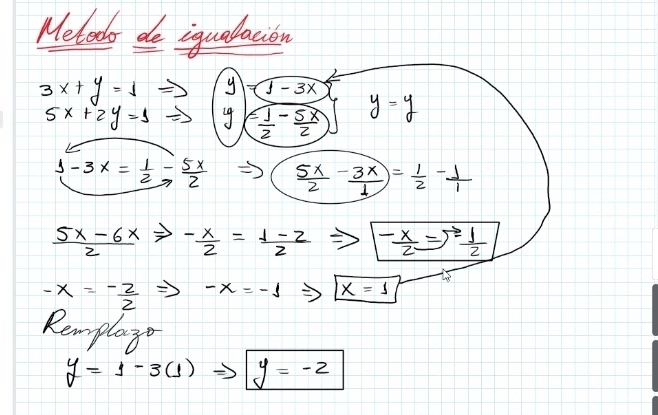 Metodo de igualación
3x + y = 1 ⇒ y = 1 - 3x
5x + 2y = 1 ⇒ y = 1/2 - 5x/2 } y = y
1 - 3x = 1/2 - 5x/2 ⇒ 5x/2 - 3x/1 = 1/2 - 1/1
5x - 6x/2 ⇒ -x/2 = 1-2/2 ⇒ -x/2 = -1/2
-x = -2/2 ⇒ -x = -1 ⇒ x = 1
Remplazo
y = 1 - 3(1) ⇒ y = -2